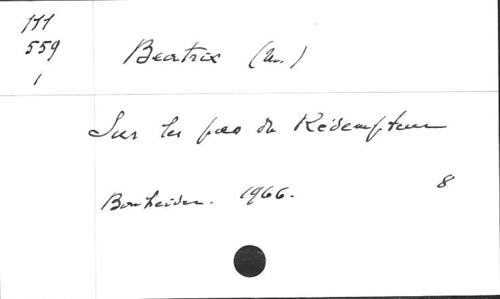 111
559
1
Beatrix (M.)
Sur les pas du Rédempteur
Bonheiden. 1966.
8